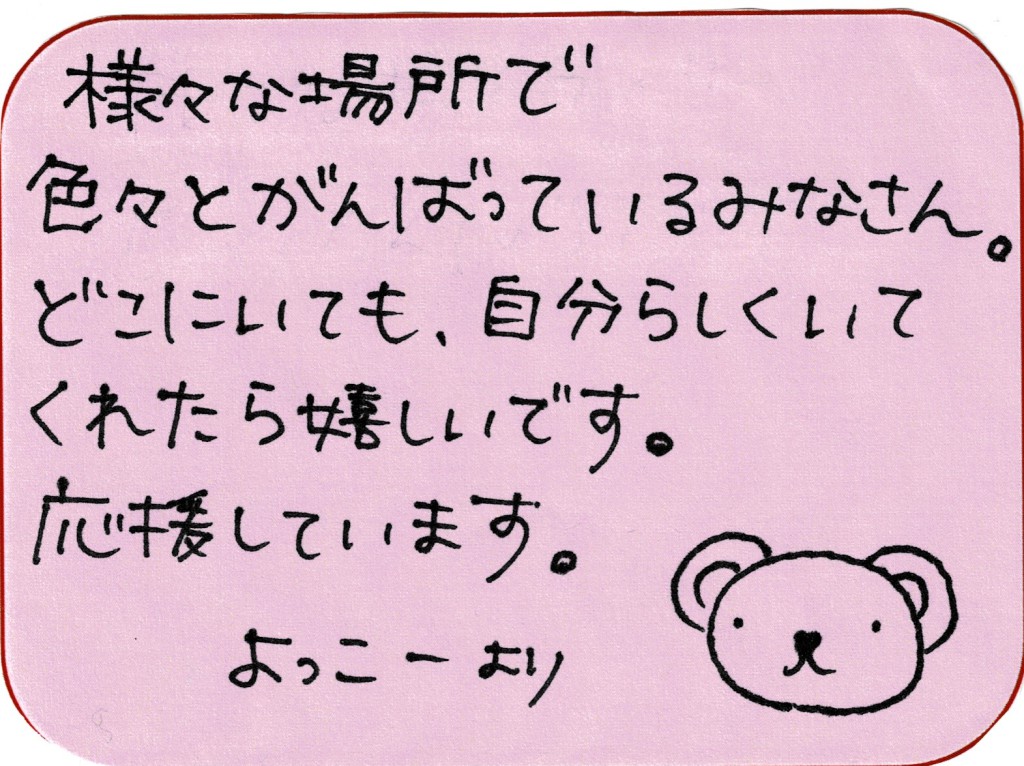 様々な場所で
色々とがんばっているみなさん。
どこにいても、自分らしくいて
くれたら嬉しいです。
応援しています。
よっこーより